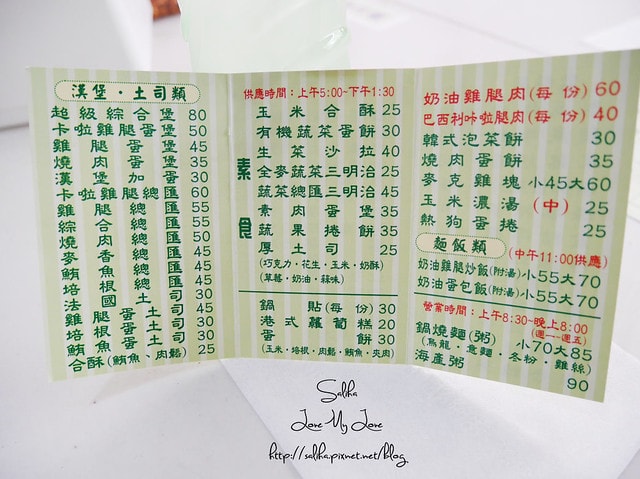 漢堡·土司類
超級綜合堡 80
卡啦雞腿蛋堡 50
雞腿蛋堡 45
燒肉蛋堡 35
漢堡加蛋 30
卡啦雞腿總匯 60
雞腿總匯 55
綜合總匯 55
燒肉總匯 50
麥香總匯 45
鮪魚總匯 45
培根總匯 45
法國土司 30
雞腿蛋土司 45
培根蛋土司 30
鮪魚蛋土司 30
合酥(鮪魚、肉鬆) 25
供應時間：上午5:00~下午1:30
素食
玉米合酥 25
有機蔬菜蛋餅 30
生菜沙拉 40
全麥蔬菜三明治 45
蔬菜總匯三明治 45
素肉蛋堡 35
蔬果捲餅 35
厚土司 25
(巧克力·花生·玉米·奶酥)
(草莓·奶油·蒜味)
鍋貼(每份) 30
港式蘿蔔糕 20
蛋餅 30
(玉米·培根·肉鬆·鮪魚·夾肉)
奶油雞腿肉(每份) 60
巴西利咔啦腿肉(每份) 40
韓式泡菜餅 30
燒肉蛋餅 35
麥克雞塊 小45大60
玉米濃湯(中) 25
熱狗蛋捲 25
麵飯類 (中午11:00供應)
奶油雞腿炒飯(附湯) 小55大70
奶油蛋包飯(附湯) 小55大70
營業時間：上午8:30~晚上8:00
(週一~週五)
鍋燒麵(粥) 小70大85
(烏龍·意麵·冬粉·雞絲)
海產粥 90
Saliha
Love My Love
http://saliha.pixnet.net/blog